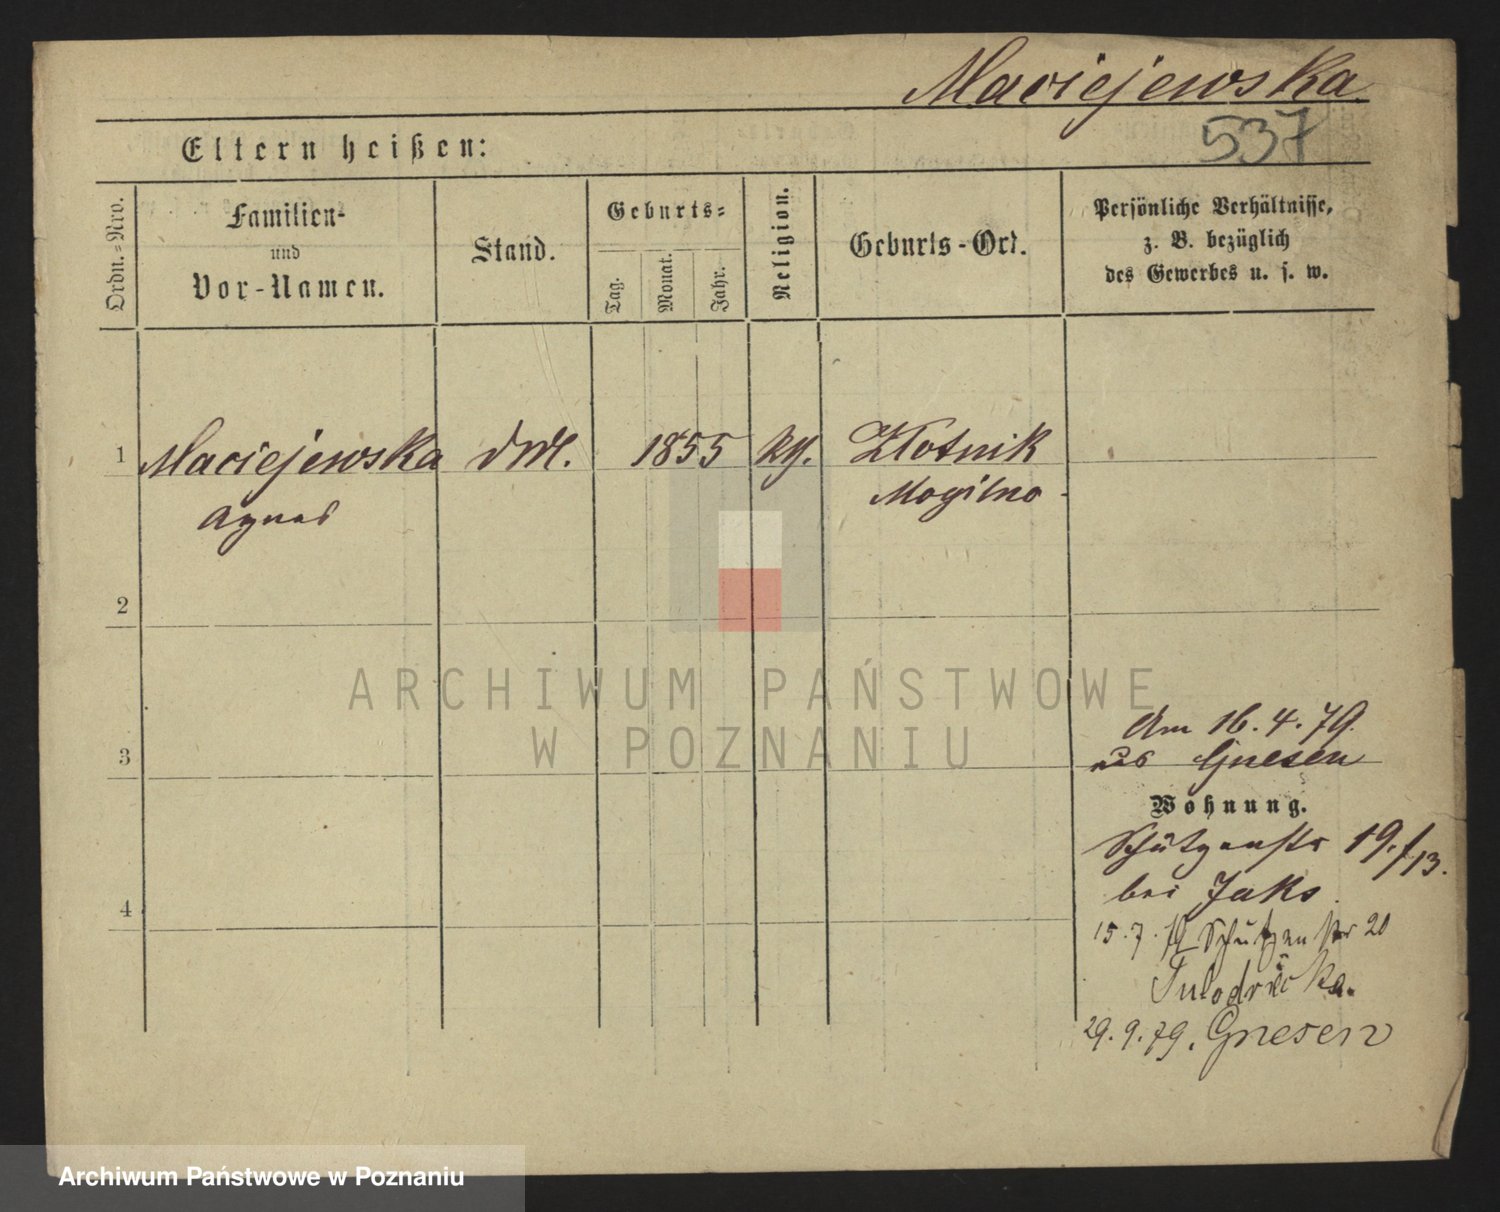 Maciejewska
537
Eltern heißen:
Ordn.-Nro.
Familien-
und
Vor-Namen.
Stand.
Geburts-
Tag.
Monat.
Jahr.
Religion.
Geburts-Ort.
Persönliche Verhältnisse,
z. B. bezüglich
des Gewerbes u. s. w.
1 Maciejewska 1855 Zlotnik
Agnes Mogilno
2
3
4
Am 16.4.79.
aus Gnesen
Wohnung.
Schützenstr 19./13.
bei Jaks.
15.7.79 Schützenstr 20
29.9.79. Gnesen
ARCHIWUM PAŃSTWOWE
W POZNANIU
Archiwum Państwowe w Poznaniu